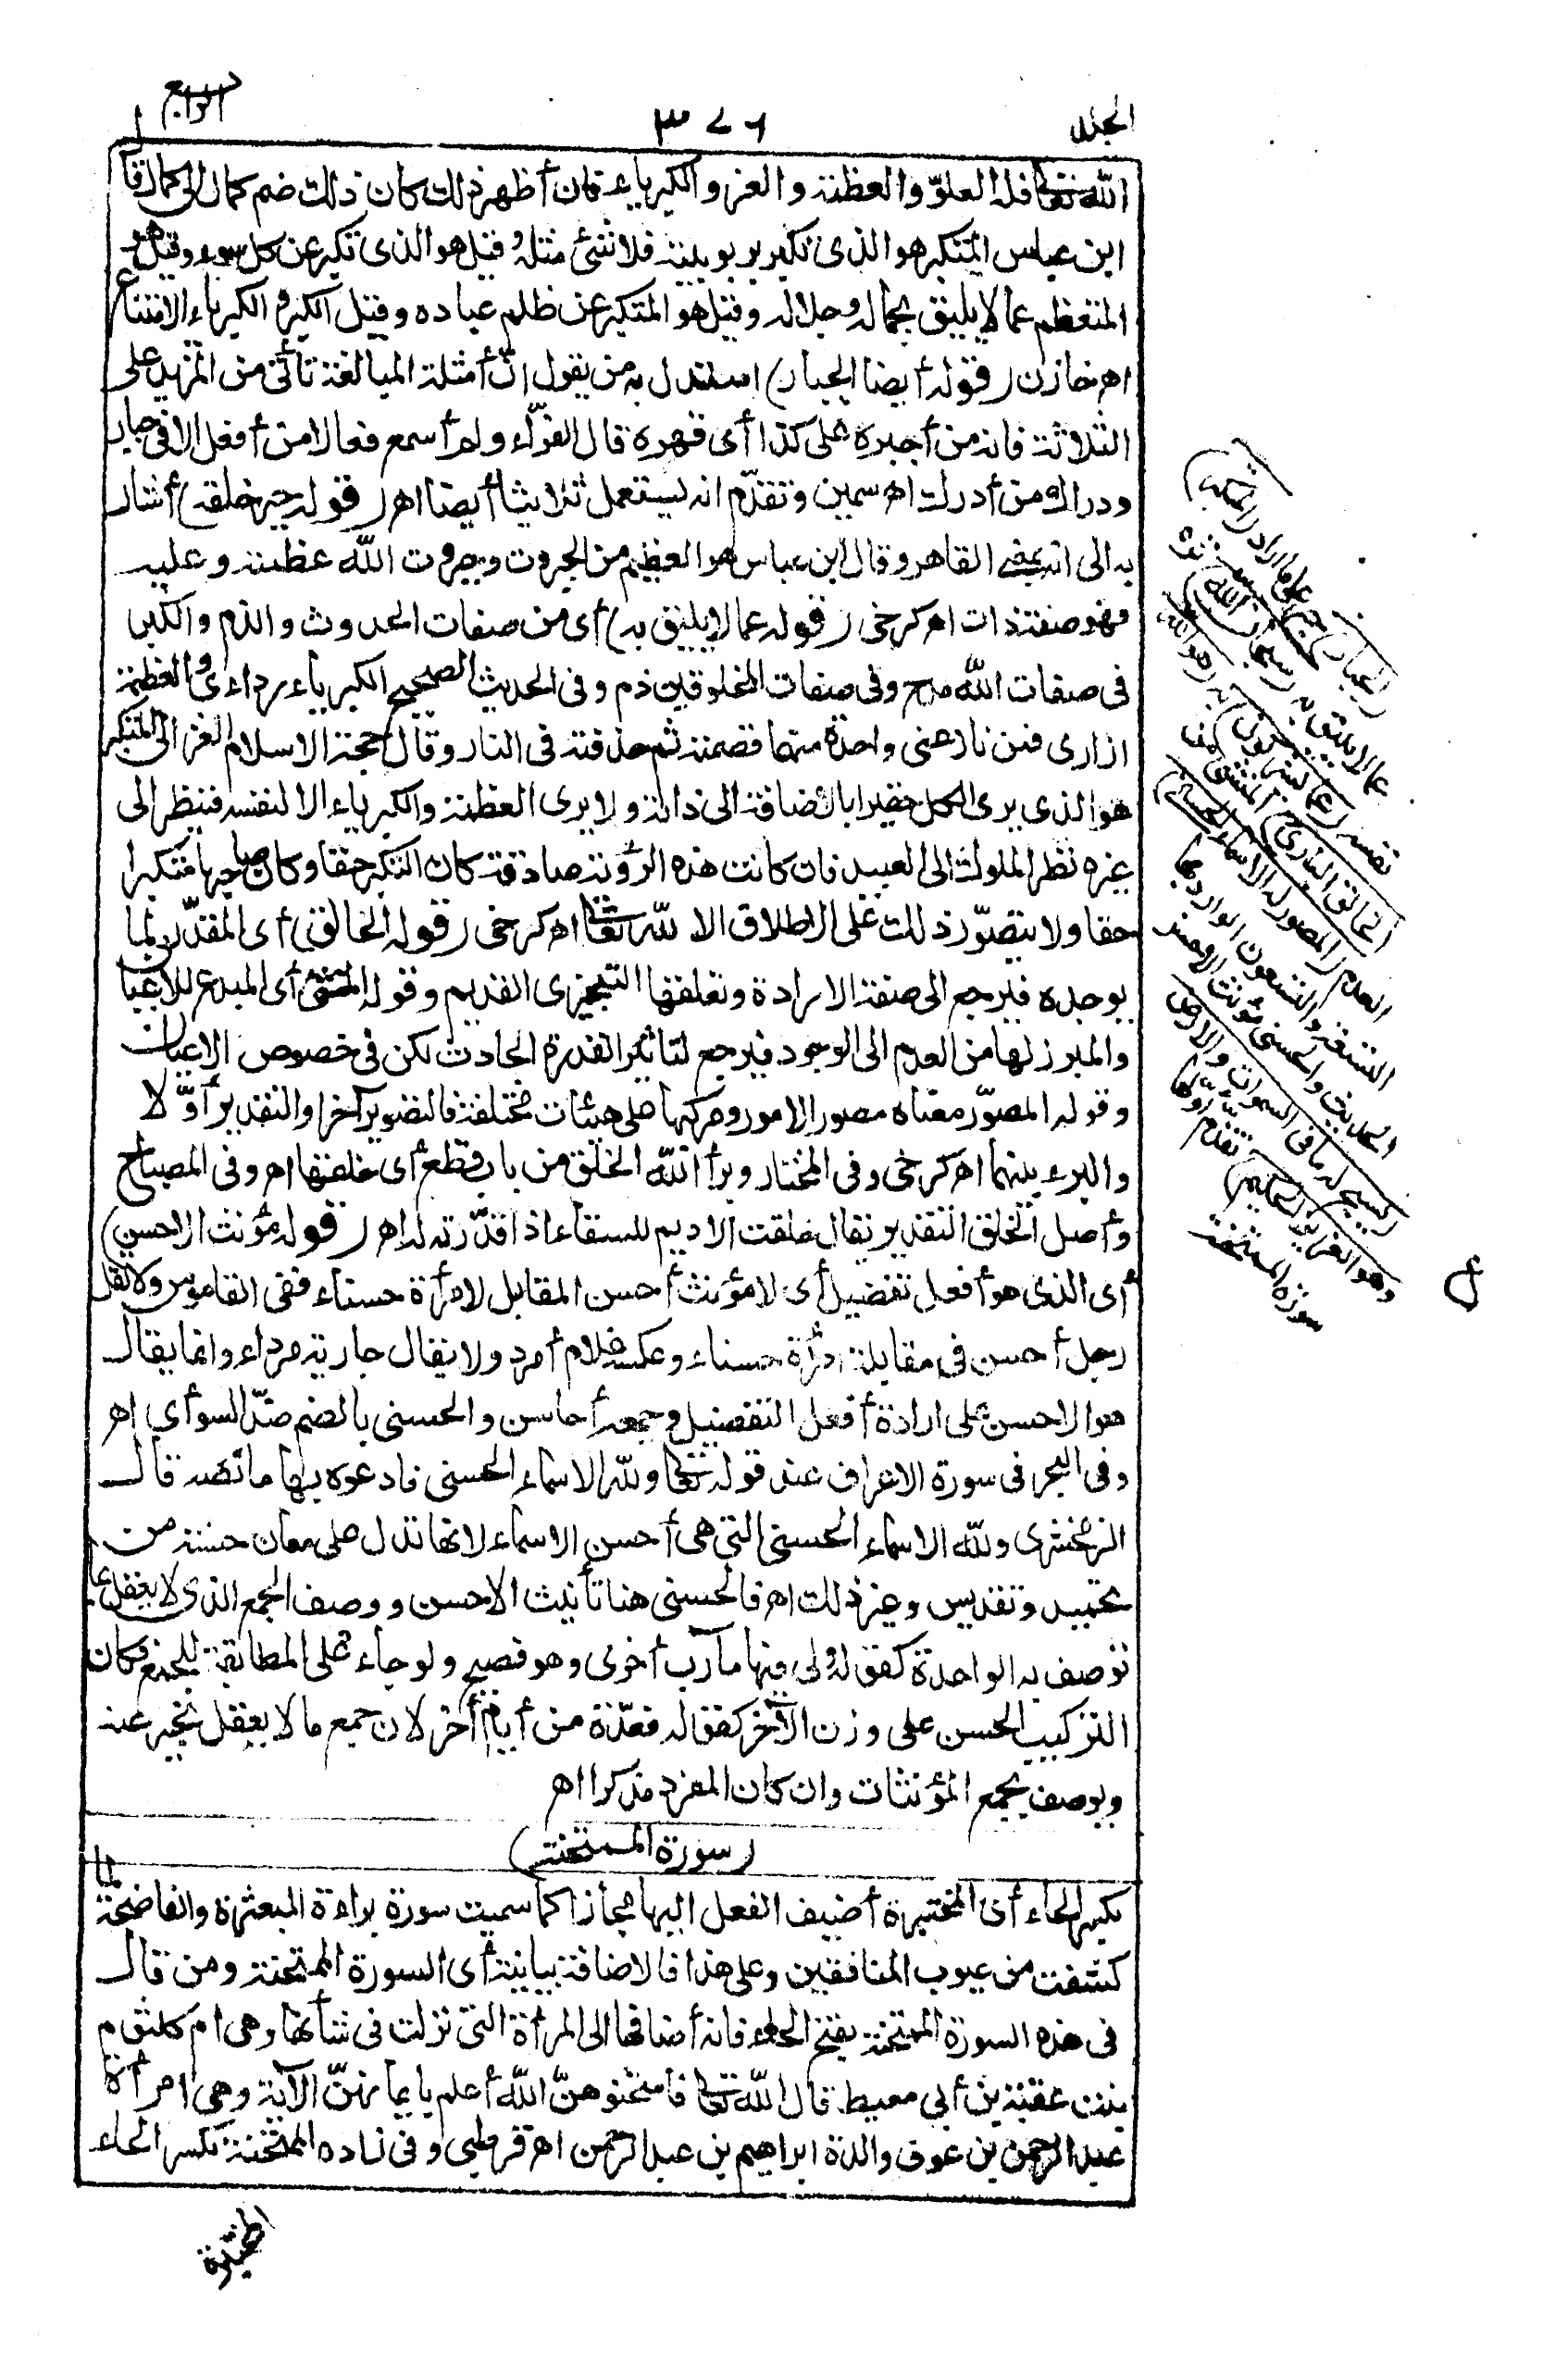 الجلد
٣٧٦
الرابع
الله تعالى فله العلوّ والعظمة والعز والكبرياء فان أظهر ذلك كان ذلك ضم كمال الى كمال قال
ابن عباس المتكبر هو الذى تكبر بربوبيته فلا شئ مثله وقيل هو الذى تكبر عن كل سوء وقيل هو
المتعظم عما لا يليق بجماله وجلاله وقيل هو المتكبر عن ظلم عباده وقيل الكبر والكبرياء الامتناع
اهـ خازن (قوله أيضا الجبار) استدل به من يقول ان أمثلة المبالغة تأتى من المزيد على
الثلاثة فانه من أجبره على كذا أى قهره قال الفرّاء ولم أسمع فعالا من أفعل الا فى جبار
ودراك من أدرك اهـ سمين وتقدّم انه يستعمل ثلاثيا أيضا اهـ (قوله جبر خلقه) أشار
به الى انه بمعنى القاهر وقال ابن عباس هو العظيم من الجبروت وجبروت الله عظمته وعليه
فهو صفة ذات اهـ كرخى (قوله عما لا يليق به) أى من صفات الحدوث والذم والكبر
فى صفات الله مدح وفى صفات المخلوقين ذم وفى الحديث الصحيح الكبرياء ردائى والعظمة
ازارى فمن نازعنى واحدة منهما قصمته ثم قذفته فى النار وقال حجة الاسلام الغزالى المتكبر
هو الذى يرى الكل حقيرا بالاضافة الى ذاته ولا يرى العظمة والكبرياء الا لنفسه فينظر الى
غيره نظر الملوك الى العبيد فان كانت هذه الرؤية صادقة كان التكبر حقا وكان صاحبها متكبرا
حقا ولا يتصوّر ذلك على الاطلاق الا لله تعالى اهـ كرخى (قوله الخالق) أى المقدّر لما
يوجده فيرجع الى صفة الارادة وتعلقها التنجيزى القديم وقوله المنشئ أى المبدع للاعيان
والمبرز لها من العدم الى الوجود فيرجع لتأثير القدرة الحادث لكن فى خصوص الاعيان
وقوله المصوّر معناه مصور الامور ومركبها على هيئات مختلفة فالتصوير آخرا والتقدير أوّلا
والبرء بينهما اهـ كرخى وفى المختار وبرأ الله الخلق من باب قطع أى خلقها اهـ وفى المصباح
وأصل الخلق التقدير يقال خلقت الاديم للسقاء اذا قدّرته له اهـ (قوله مؤنث الاحسن)
أى الذى هو أفعل تفضيل أى لا مؤنث أحسن المقابل لامرأة حسناء ففى القاموس ولا تقل
رجل أحسن فى مقابلة امرأة حسناء وعكسه غلام أمرد ولا يقال جارية مرداء وانما يقال
هو الاحسن على ارادة أفعل التفضيل وجمعه أحاسن والحسنى بالضم ضدّ السوأى اهـ
وفى البحر فى سورة الاعراف عند قوله تعالى ولله الاسماء الحسنى فادعوه بها ما نصه قال
الزمخشرى ولله الاسماء الحسنى التى هى أحسن الاسماء لانها تدل على معان حسنة من
تحميد وتقديس وغير ذلك اهـ فالحسنى هنا تأنيث الاحسن ووصف الجمع الذى لا يعقل بما
توصف به الواحدة كقوله ولى فيها مآرب أخرى وهو فصيح ولو جاء على المطابقة للجمع لكان
التركيب الحسن على وزن الآخر كقوله فعدّة من أيام أخر لان جمع ما لا يعقل يخبر عنه
ويوصف بجمع المؤنثات وان كان المفرد مذكرا اهـ
(سورة الممتحنة)
بكسر الحاء أى المختبرة أضيف الفعل اليها مجازا كما سميت سورة براءة المبعثرة والفاضحة لما
كشفت من عيوب المنافقين وعلى هذا فالاضافة بيانية أى السورة الممتحنة ومن قال
فى هذه السورة الممتحنة بفتح الحاء فانه أضافها الى المرأة التى نزلت فى شأنها وهى ام كلثوم
بنت عقبة بن أبى معيط قال الله تعالى فامتحنوهنّ الله أعلم بايمانهنّ الآية وهى امرأة
عبد الرحمن بن عوف والدة ابراهيم بن عبد الرحمن اهـ قرطبى وفى زاده الممتحنة بكسر الحاء
المختبرة
(الجبار) جبر خلقه على ما أراد (المتكبر)
عما لا يليق به (سبحان الله) نزه
نفسه (عما يشركون) به (هو الله
الخالق البارئ) المنشئ من
العدم (المصور له الاسماء الحسنى)
التسعة والتسعون الوارد بها
الحديث والحسنى مؤنث الاحسن
(يسبح له ما فى السموات والارض
وهو العزيز الحكيم) تقدّم أوّلها
سورة الممتحنة